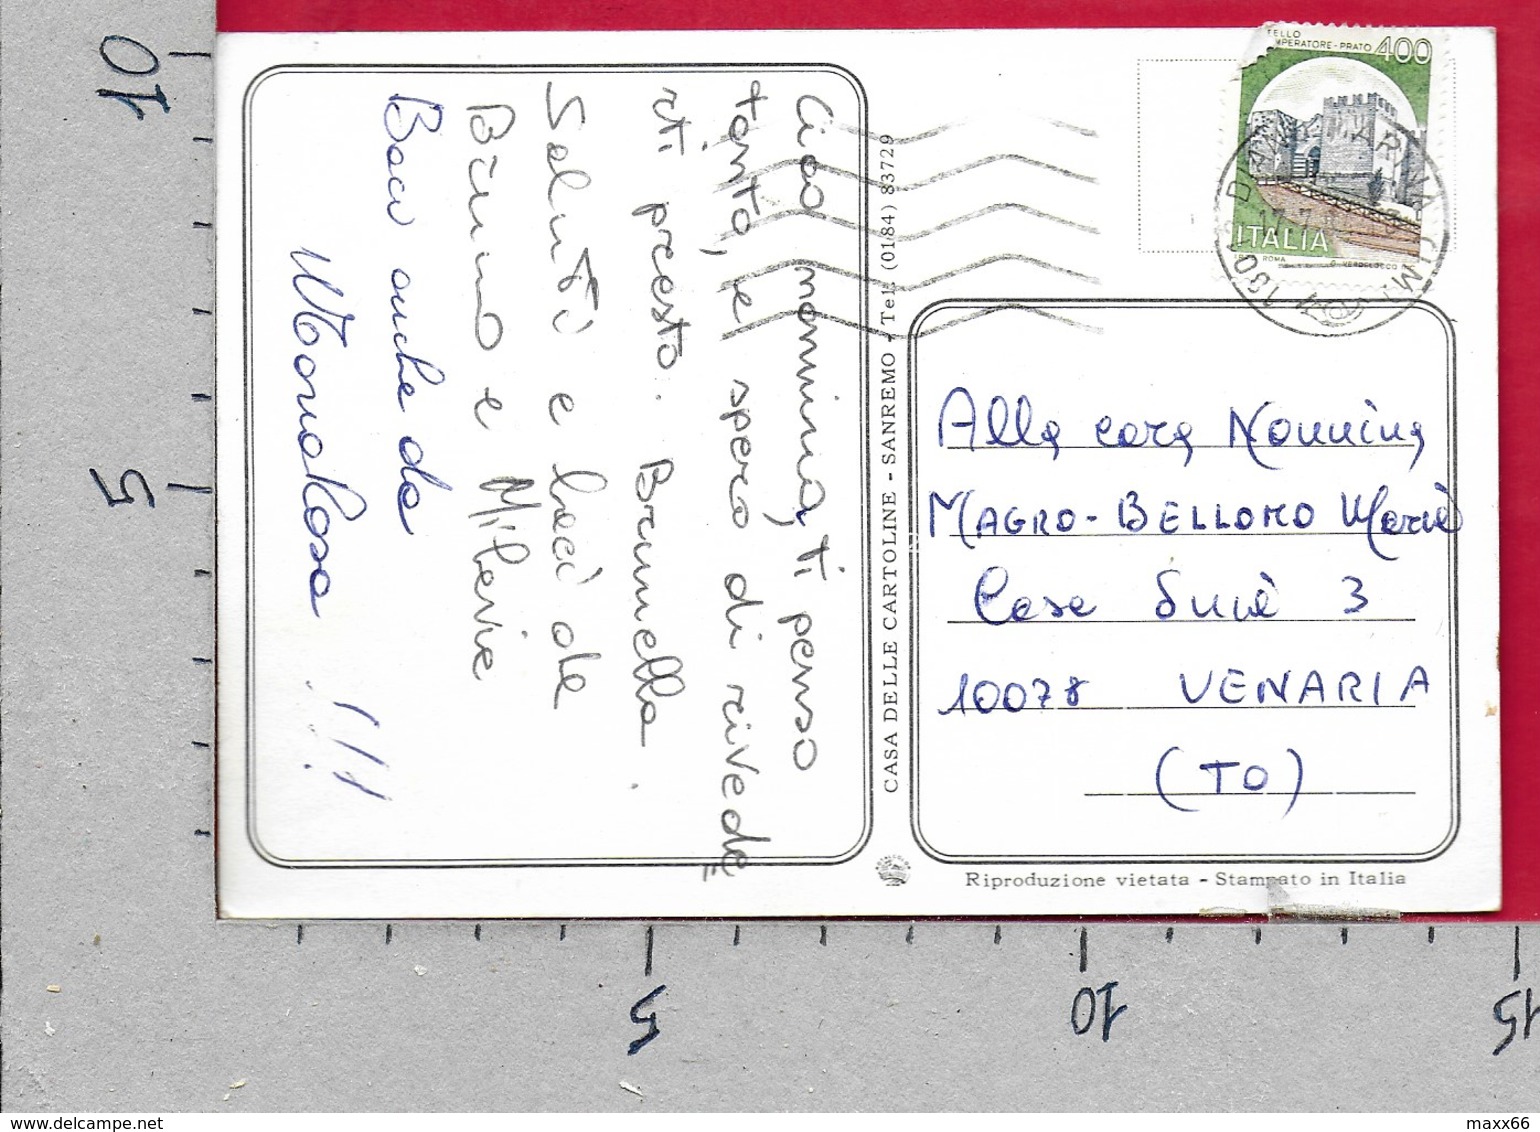 Ciao nonnina, ti penso
tanto, e spero di rivede
rti presto. Brunella.
Saluti e baci da
Bruno e Milevie
Baci anche da
MariaRosa !!!
CASA DELLE CARTOLINE - SANREMO - Tel. (0184) 83729
TELLO
MPERATORE - PRATO 400
ITALIA
ROMA
17.7
Alla cara Nonnina
MAGRO - BELLOMO Maria
Casa 3
10078 VENARIA
(TO)
Riproduzione vietata - Stampato in Italia
10
5
5
10
15
www.delcampe.net
maxx66